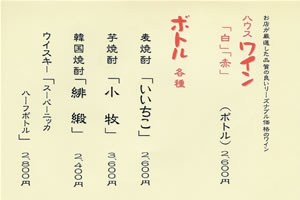 お店が厳選した品質の良いリーズナブル価格のワイン
ハウスワイン
「白」「赤」 (ボトル) 2,600円
ボトル 各種
麦焼酎「いいちこ」 2,600円
芋焼酎「小牧」 3,600円
韓国焼酎「緋緞」 2,400円
ウイスキー「スーパーニッカ
ハーフボトル」 2,800円